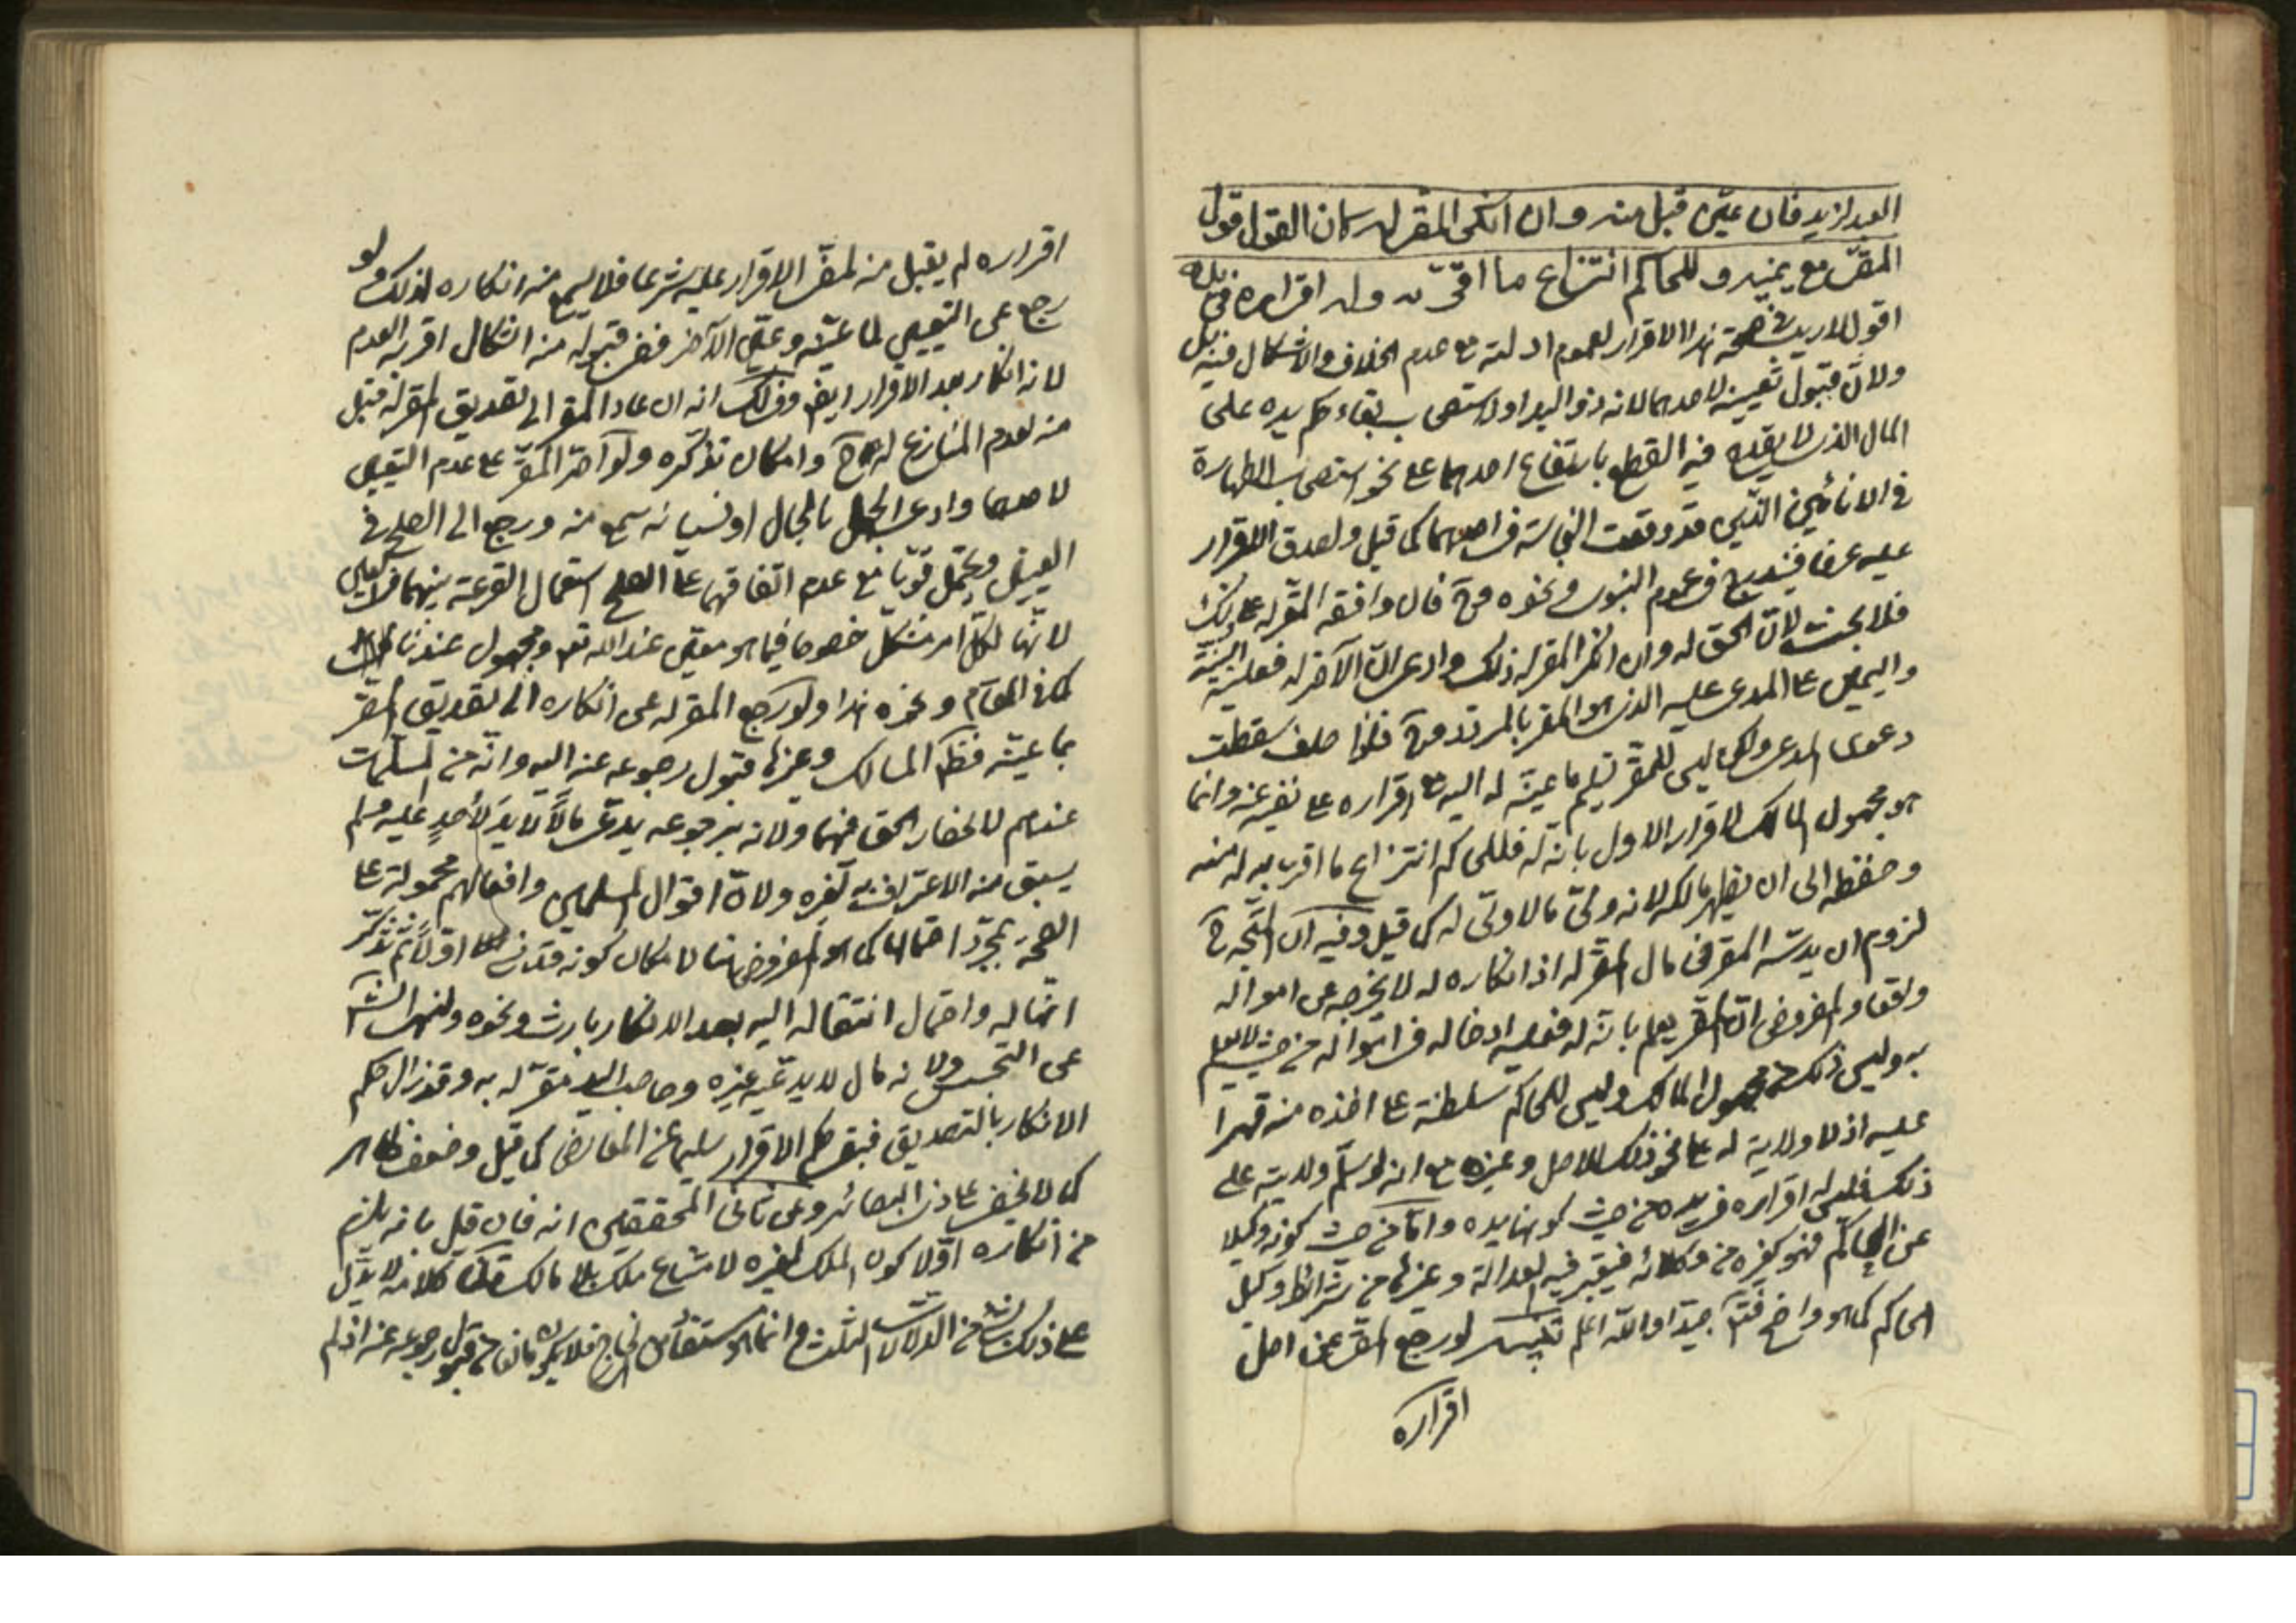 العبد لزيد فان عيّن قبل منه وان انكر المقر له كان القول قول
المقرّ مع يمينه وللحاكم انتزاع ما اقرّ به وله اقراره في يده
اقول لا ريب في صحة هذا الاقرار لعموم ادلته مع عدم الخلاف والاشكال فيه بل
ولا في قبول تعيينه لاحدهما لانه ذو اليد اولا ستصحاب بقاء حكم يده على
المال الذي لا يقدح فيه القطع بارتفاع احدهما على نحو استصحاب الطهارة
في الانائين الذين قد وقعت النجاسة في احدهما كما قيل ولصدق الاقرار
عليه عرفا فيندرج في عموم النبوي ونحوه وح فان وافقه المقر له على ذلك
فلا بحث لان الحق له وان انكر المقر له ذلك وادعى ان الآخر له فعليه البينة
واليمين على المدعى عليه الذي هو المقر بالمرتد وح فاذا حلف سقطت
دعوى المدعي ولكن ليس للمقر تسليم ما عيّنه له اليه مع اقراره على نفيه عنه وانما
هو مجهول المالك لاقراره الاول بانه له فللحاكم انتزاع ما اقر به له منه
وحفظه الى ان يظهر مالكه لانه ولي ما لا ولي له كما قيل وفيه ان المتجه ح
لزوم ان يدسّه المقر في مال المقر له اذ انكاره له لا يخرجه عن امواله
واقعا والمفروض ان المقر يعلم بانه له فعليه ادخاله في امواله من حيث لا يعلم
به وليس ذلك من مجهول المالك وليس للحاكم سلطنة على اخذه منه قهرا
عليه اذ لا ولاية له على نحو ذلك للاصل وغيره مع انه لو سلّم ولايته على
ذلك فليس له اقراره في يده من حيث كونها يده واما من حيث كونه وكيلا
عن الحاكم فهو كغيره من وكلائه فيعتبر فيه العدالة وغيرها من شرائط وكيل
الحاكم كما هو واضح فتأمل جيدا والله اعلم تنبيه لو رجع المقر عن اصل
اقراره
اقراره لم يقبل منه لمضي الاقرار عليه شرعا فلا يسمع منه انكاره لذلك ولو
رجع عن التعيين لما عيّنه وعيّن الآخر ففي قبوله منه اشكال اقربه العدم
لانه انكار بعد الاقرار ايضا وذلك انه ان عاد المقر الى تصديق المقر له قبل
منه لعدم المنازع له ح وامكان تذكره ولو اصرّ المقر على عدم التعيين
لاحدهما وادعى الجهل بالحال او نسيانه سمع منه ورجع الى الصلح في
العينين ويحتمل قويا مع عدم اتفاقهما على الصلح استعمال القرعة بينهما في التعيين
لانها لكل امر مشكل خصوصا فيما هو معين عند الله تعالى ومجهول عندنا
كما في المقام ونحوه هذا ولو رجع المقر له عن انكاره الى تصديق المقر
بما عيّنه فظاهر المسالك وغيرها قبول رجوعه عنه اليه وانه من المسلمات
عندهم لانحصار الحق فيهما ولانه برجوعه يدعي مالا لا يد لاحد عليه ولم
يسبق منه الاعتراف به لغيره ولان اقوال المسلمين وافعالهم محمولة على
الصحة بمجرد احتمالها كما هو المفروض هنا لامكان كونه قد نسي اولا ثم تذكر
انها له واحتمال انتقاله اليه بعد الانكار بارث ونحوه ولنهي الشارع
عن التجسس ولانه مال لا يدعيه غيره وصاحب اليد مقر له به وقد زال حكم
الانكار بالتصديق فبقي حكم الاقرار سليما عن المعارض كما قيل وضعف ظاهر
كما لا يخفى على ذي البصائر وعن ثاني المحققين انه فان قيل بانه يلزم
من انكاره اولا كون الملك لغيره لامتناع ملك بلا مالك قلنا كلامه لا يدل
على ذلك بشيء من الدلالات الثلث وانما هو مستفاد من خارج فلا يكون مانعا من قبول رجوعه عنه اذ لم